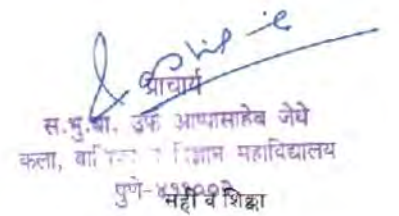 प्राचार्य
स.भु.बा. उर्फ आप्पासाहेब जेधे
कला, विज्ञान महाविद्यालय
पुणे-४११००२
सही व शिक्का